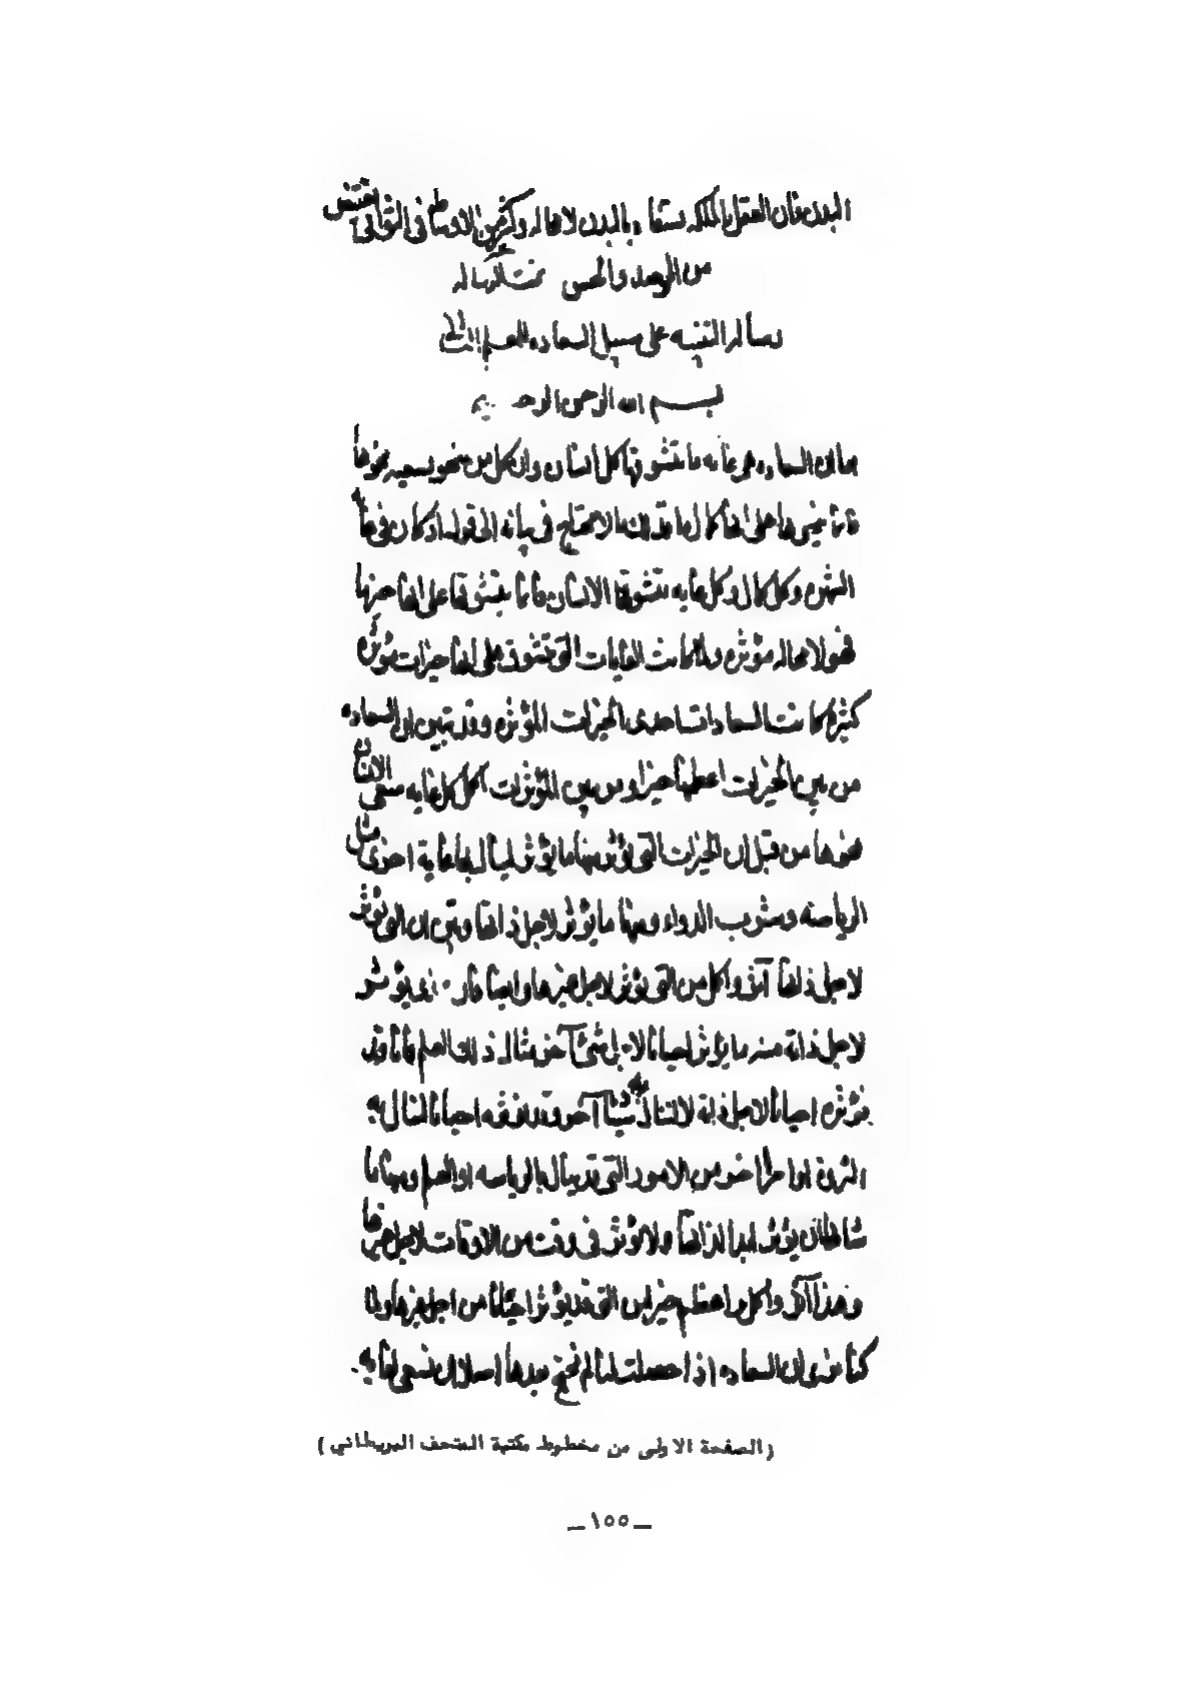 البدن فان العقل بالملكه يستفاد بالبدن لا محاله وكثير من الاوساط في التوالى يقتنص
من الرصد والحس تمت الرساله
رساله التنبيه على سبيل السعاده للمعلم الثانى
بسم الله الرحمن الرحيم
اما ان السعاده هى غايه ما يتشوقها كل انسان وان كل من ينحو بسعيه نحوها
فانما ينحوها على انها كمال ما فذلك ما لا يحتاج فى بيانه الى قول اذ كان فى غايه
الشهره وكل كمال وكل غايه يتشوقها الانسان فانما يتشوقها على انها خير ما
فهو لا محاله مؤثره ولما كانت الغايات التى تتشوق على انها خيرات مؤثره
كثيره كانت السعاده احدى الخيرات المؤثره وقد تبين ان السعاده
من بين الخيرات اعظمها خيرا ومن بين المؤثرات اكمل كل غايه سعى الانسان
نحوها من قبل ان الخيرات التى تؤثر منها ما يؤثر لينال بها غاية اخرى مثل
الرياضه وشرب الدواء ومنها ما يؤثر لاجل ذاتها وتبين ان التى تؤثر
لاجل ذاتها آثر واكمل من التى تؤثر لاجل غيرها وايضا فان الذى يؤثر
لاجل ذاته منه ما يؤثر احيانا لاجل شئ آخر مثال ذلك العلم فانا قد
نؤثره احيانا لاجل ذاته لا لننال به شيئا آخر وقد نؤثره احيانا لننال به
الثروة او امرا آخر من الامور التى قد ينال بالرياسه او العلم ومنها ما
شانها ان يؤثر ابدا لذاتها ولا تؤثر فى وقت من الاوقات لاجل غيرها
وهذا آثر واكمل واعظم خيرا من التى قد يؤثر احيانا من اجل غيرها ولما
كنا نرى ان السعاده اذا حصلت لنا لم نحتج بعدها اصلا ان نسعى لغايه
(الصفحة الاولى من مخطوط مكتبة المتحف البريطاني)
ــ ١٥٥ ــ